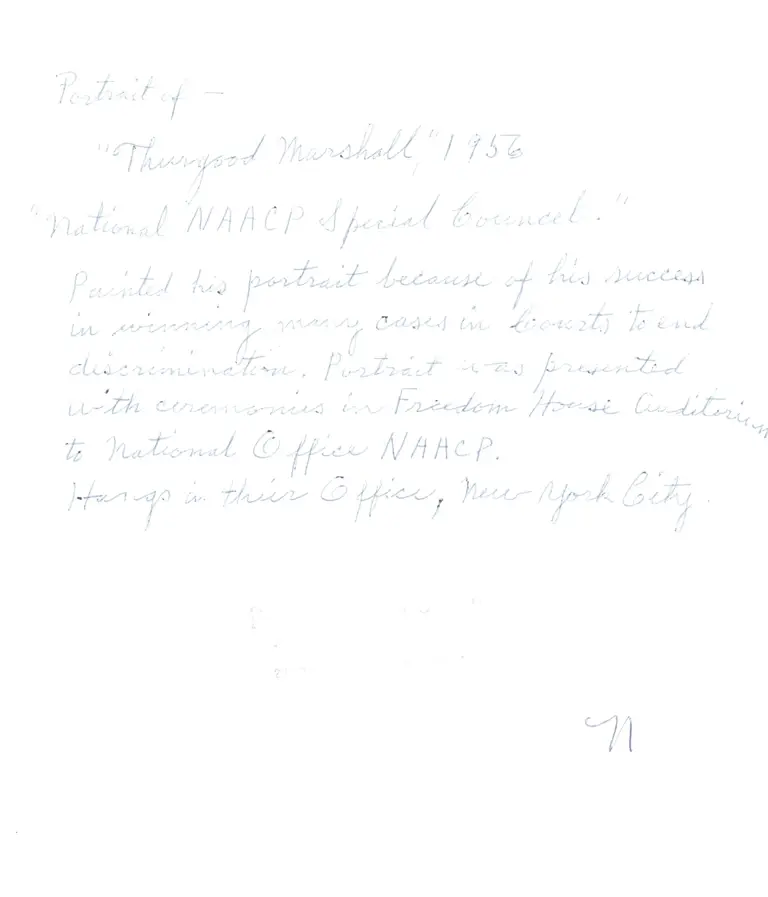 Portrait of —
"Thurgood Marshall," 1956
"National NAACP Special Councel."
Painted his portrait because of his success
in winning many cases in Courts to end
discrimination. Portrait was presented
with ceremonies in Freedom House Auditorium
to National Office NAACP.
Hangs in their Office, New York City.
N